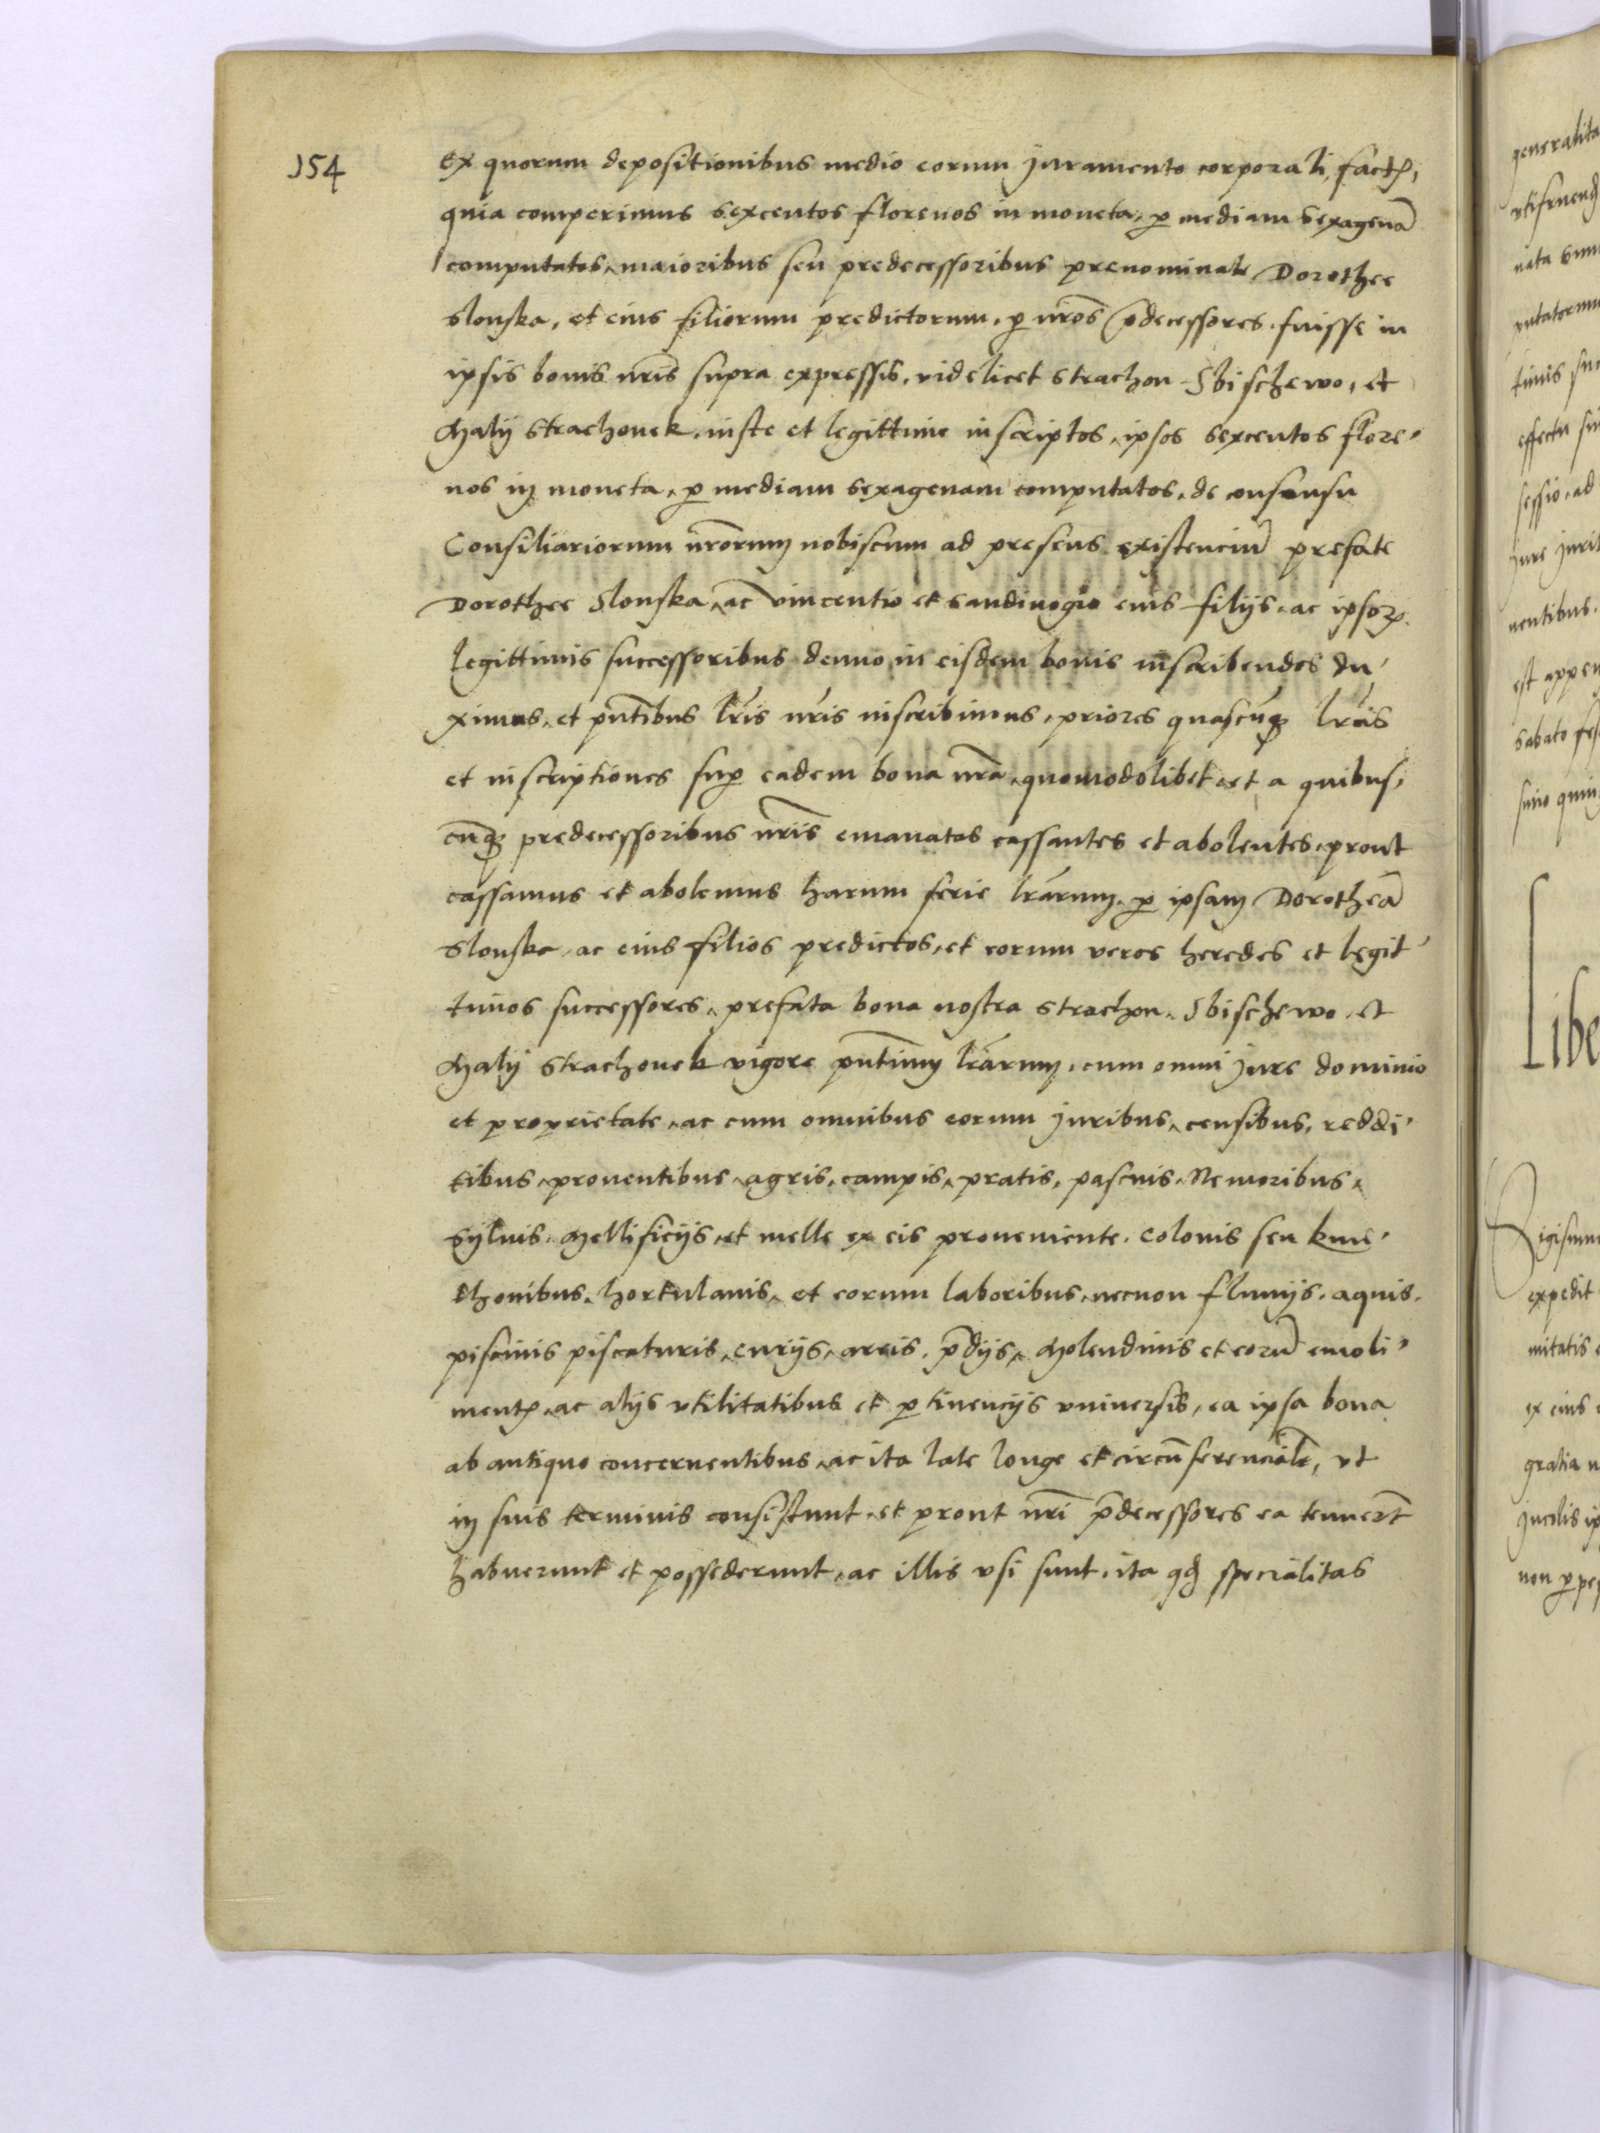 154
Ex quorum depositionibus medio eorum Juramento corporali, factꝭ,
quia comperimus sexcentos florenos in moneta, ꝑ mediam sexagenā
computatos, maioribus seu predecessoribus prenominate Dorothee
Slonska, et eius filiorum predictorum, ꝑ nr̄os p̄decessores, fuisse in
ipsis bonis nr̄is supra expressis, videlicet Strachon Sbischewo, et
Maly Strachonek, iuste et legittime inscriptos, ipsos sexcentos flore-
nos in moneta, ꝑ mediam sexagenam computatos, de consensu
Consiliariorum nr̄orum nobiscum ad presens existenciū prefate
Dorothee Slonska, ac Vincentio et Sandiuogio eius filijs, ac ipsoꝝ
legittimis successoribus denuo in eisdem bonis inscribendos du-
ximus, et pn̄tibus lr̄is nr̄is inscribimus, priores quascunqꝫ lr̄as
et inscriptiones suꝑ eadem bona nr̄a, quomodolibet, et a quibus-
cūqꝫ predecessoribus nr̄is emanatas cassantes et abolentes, prout
cassamus et abolemus harum serie lr̄arum, ꝑ ipsam Dorotheā
Slonska, ac eius filios predictos, et eorum veros heredes et legit-
timos successores, prefata bona nostra Strachon, Sbischewo, et
Maly Strachonek vigore pn̄tium lr̄arum, cum omni Jure dominio
et proprietate, ac cum omnibus eorum Juribus, censibus, reddi-
tibus, prouentibus, agris, campis, pratis, pascuis, Nemoribus,
Syluis, Mellificijs, et melle ex eis proueniente, Colonis seu kme-
thonibus, hortulanis, et eorum laboribus, necnon fluuijs, aquis,
piscinis piscaturis, curijs, areis, p̄dijs, Molendinis et eorū emoli-
mentꝭ, ac alijs vtilitatibus et ꝑtinencijs vniuersis, ea ipsa bona
ab antiquo concernentibus, ac ita late longe et circūferencialr̄, vt
in suis terminis consistunt, et prout nr̄i p̄decessores ea tenuer̄t
habuerunt et possederunt, ac illis vsi sunt, ita qđ specialitas